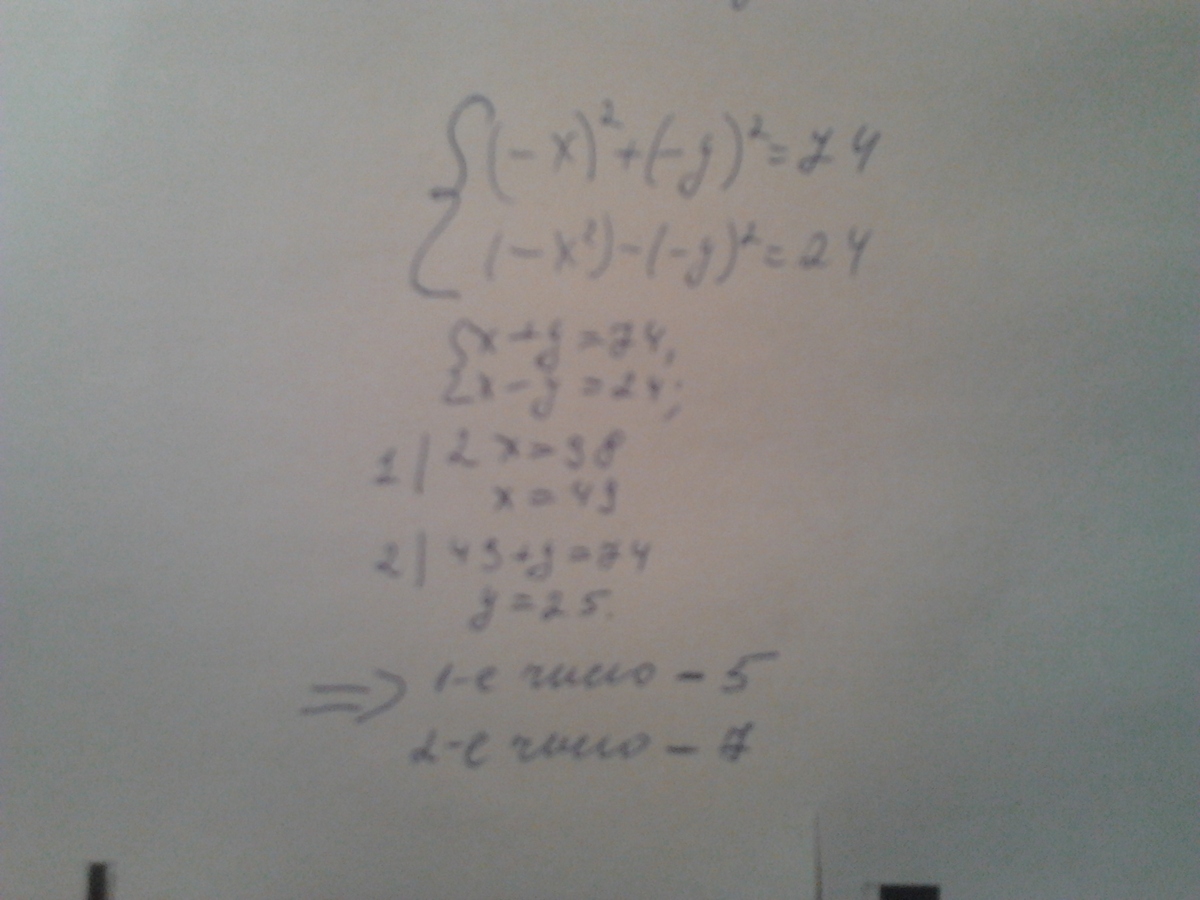 {(-x)²+(-y)²=74
(-x²)-(-y)²=24
{x+y=74,
x-y=24;
1| 2x=98
x=49
2| 49+y=74
y=25.
=> 1-е число - 5
2-е число - 7